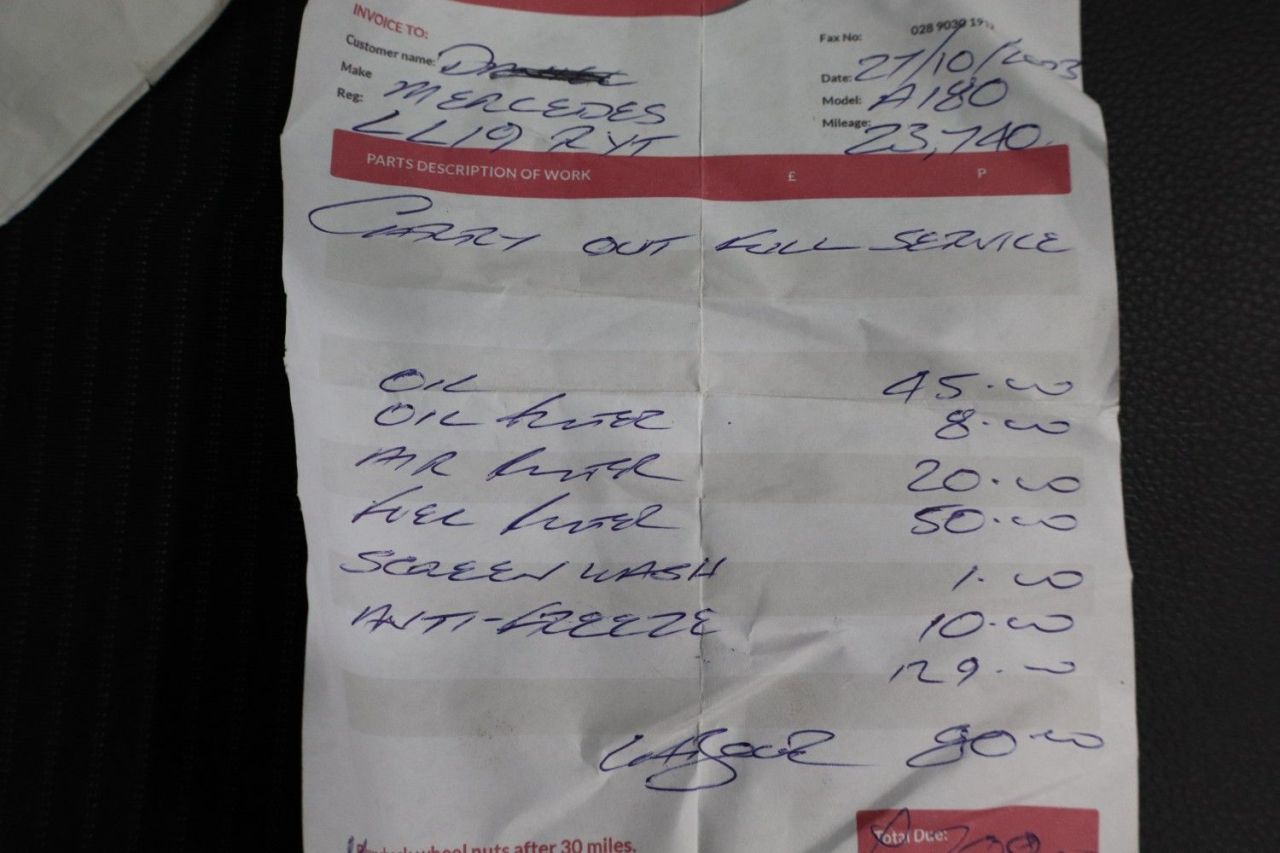 INVOICE TO:
Fax No: 028 9030 19
Customer name:
Date: 27/10/2023
Make MERCEDES
Model: A180
Reg: LL19 RYT
Mileage: 23,740
PARTS DESCRIPTION OF WORK £ P
CARRY OUT FULL SERVICE
OIL 45.00
OIL FILTER 8.00
AIR FILTER 20.00
FUEL FILTER 50.00
SCREEN WASH 1.00
ANTI-FREEZE 10.00
129.00
LABOUR 80.00
wheel nuts after 30 miles.
Total Due: